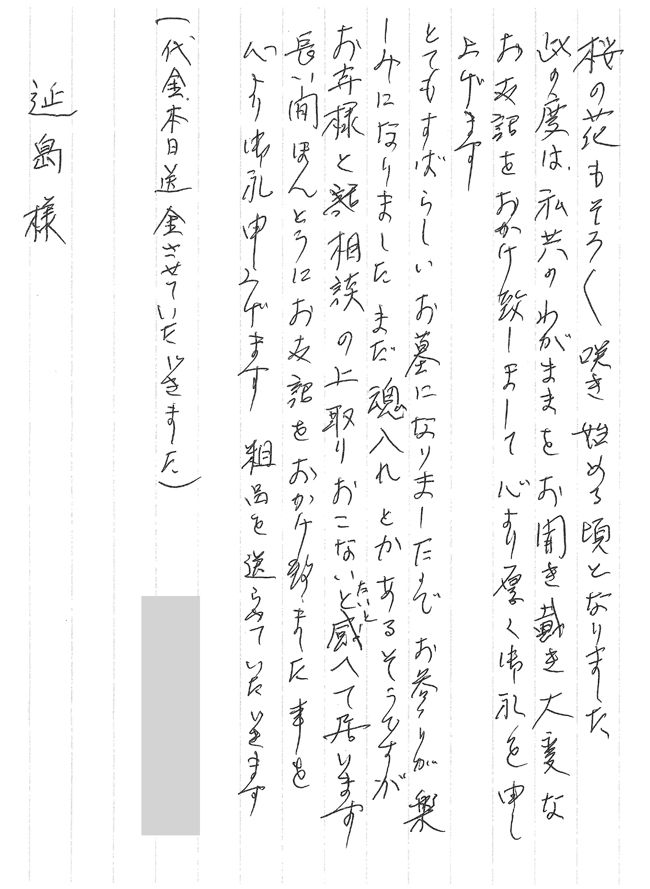 桜の花もそろ〱咲き始める頃となりました
此の度は、私共のわがままをお聞き戴き大変な
お世話をおかけ致しまして心より厚く御礼を申し
上げます
とてもすばらしいお墓になりましたのでお参りが楽
しみになりましたまだ魂入れとかあるそうですが
お寺様と話相談の上取りおこないたいと感へて居ります
長い間ほんとうにお世話をおかけ致しました事を
心より御礼申上げます 粗品を送らせていたゞきます
(代金本日送金させていたゞきました)
近島様